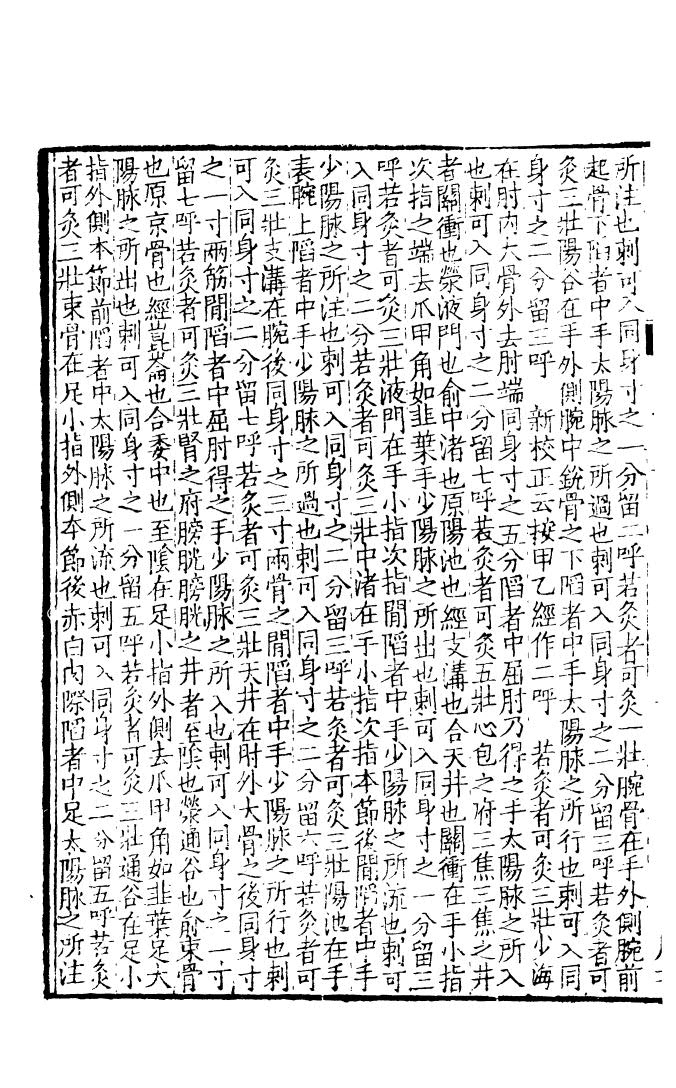 所注也刺可入同身寸之一分留二呼若灸者可灸一壯腕骨在手外側腕前
起骨下陷者中手太陽脉之所過也刺可入同身寸之二分留三呼若灸者可
灸三壯陽谷在手外側腕中銳骨之下陷者中手太陽脉之所行也刺可入同
身寸之二分留三呼　新校正云按甲乙經作二呼　若灸者可灸三壯少海
在肘內大骨外去肘端同身寸之五分陷者中屈肘乃得之手太陽脉之所入
也刺可入同身寸之二分留七呼若灸者可灸五壯心包之府三焦三焦之井
者關衝也滎液門也俞中渚也原陽池也經支溝也合天井也關衝在手小指
次指之端去爪甲角如韭葉手少陽脉之所出也刺可入同身寸之一分留三
呼若灸者可灸三壯液門在手小指次指閒陷者中手少陽脉之所流也刺可
入同身寸之二分若灸者可灸三壯中渚在手小指次指本節後閒陷者中手
少陽脉之所注也刺可入同身寸之二分留三呼若灸者可灸三壯陽池在手
表腕上陷者中手少陽脉之所過也刺可入同身寸之二分留六呼若灸者可
灸三壯支溝在腕後同身寸之三寸兩骨之閒陷者中手少陽脉之所行也刺
可入同身寸之二分留七呼若灸者可灸三壯天井在肘外大骨之後同身寸
之一寸兩筋閒陷者中屈肘得之手少陽脉之所入也刺可入同身寸之一寸
留七呼若灸者可灸三壯腎之府膀胱膀胱之井者至陰也滎通谷也俞束骨
也原京骨也經崑崙也合委中也至陰在足小指外側去爪甲角如韭葉足太
陽脉之所出也刺可入同身寸之一分留五呼若灸者可灸三壯通谷在足小
指外側本節前陷者中太陽脉之所流也刺可入同身寸之二分留五呼若灸
者可灸三壯束骨在足小指外側本節後赤白肉際陷者中足太陽脉之所注